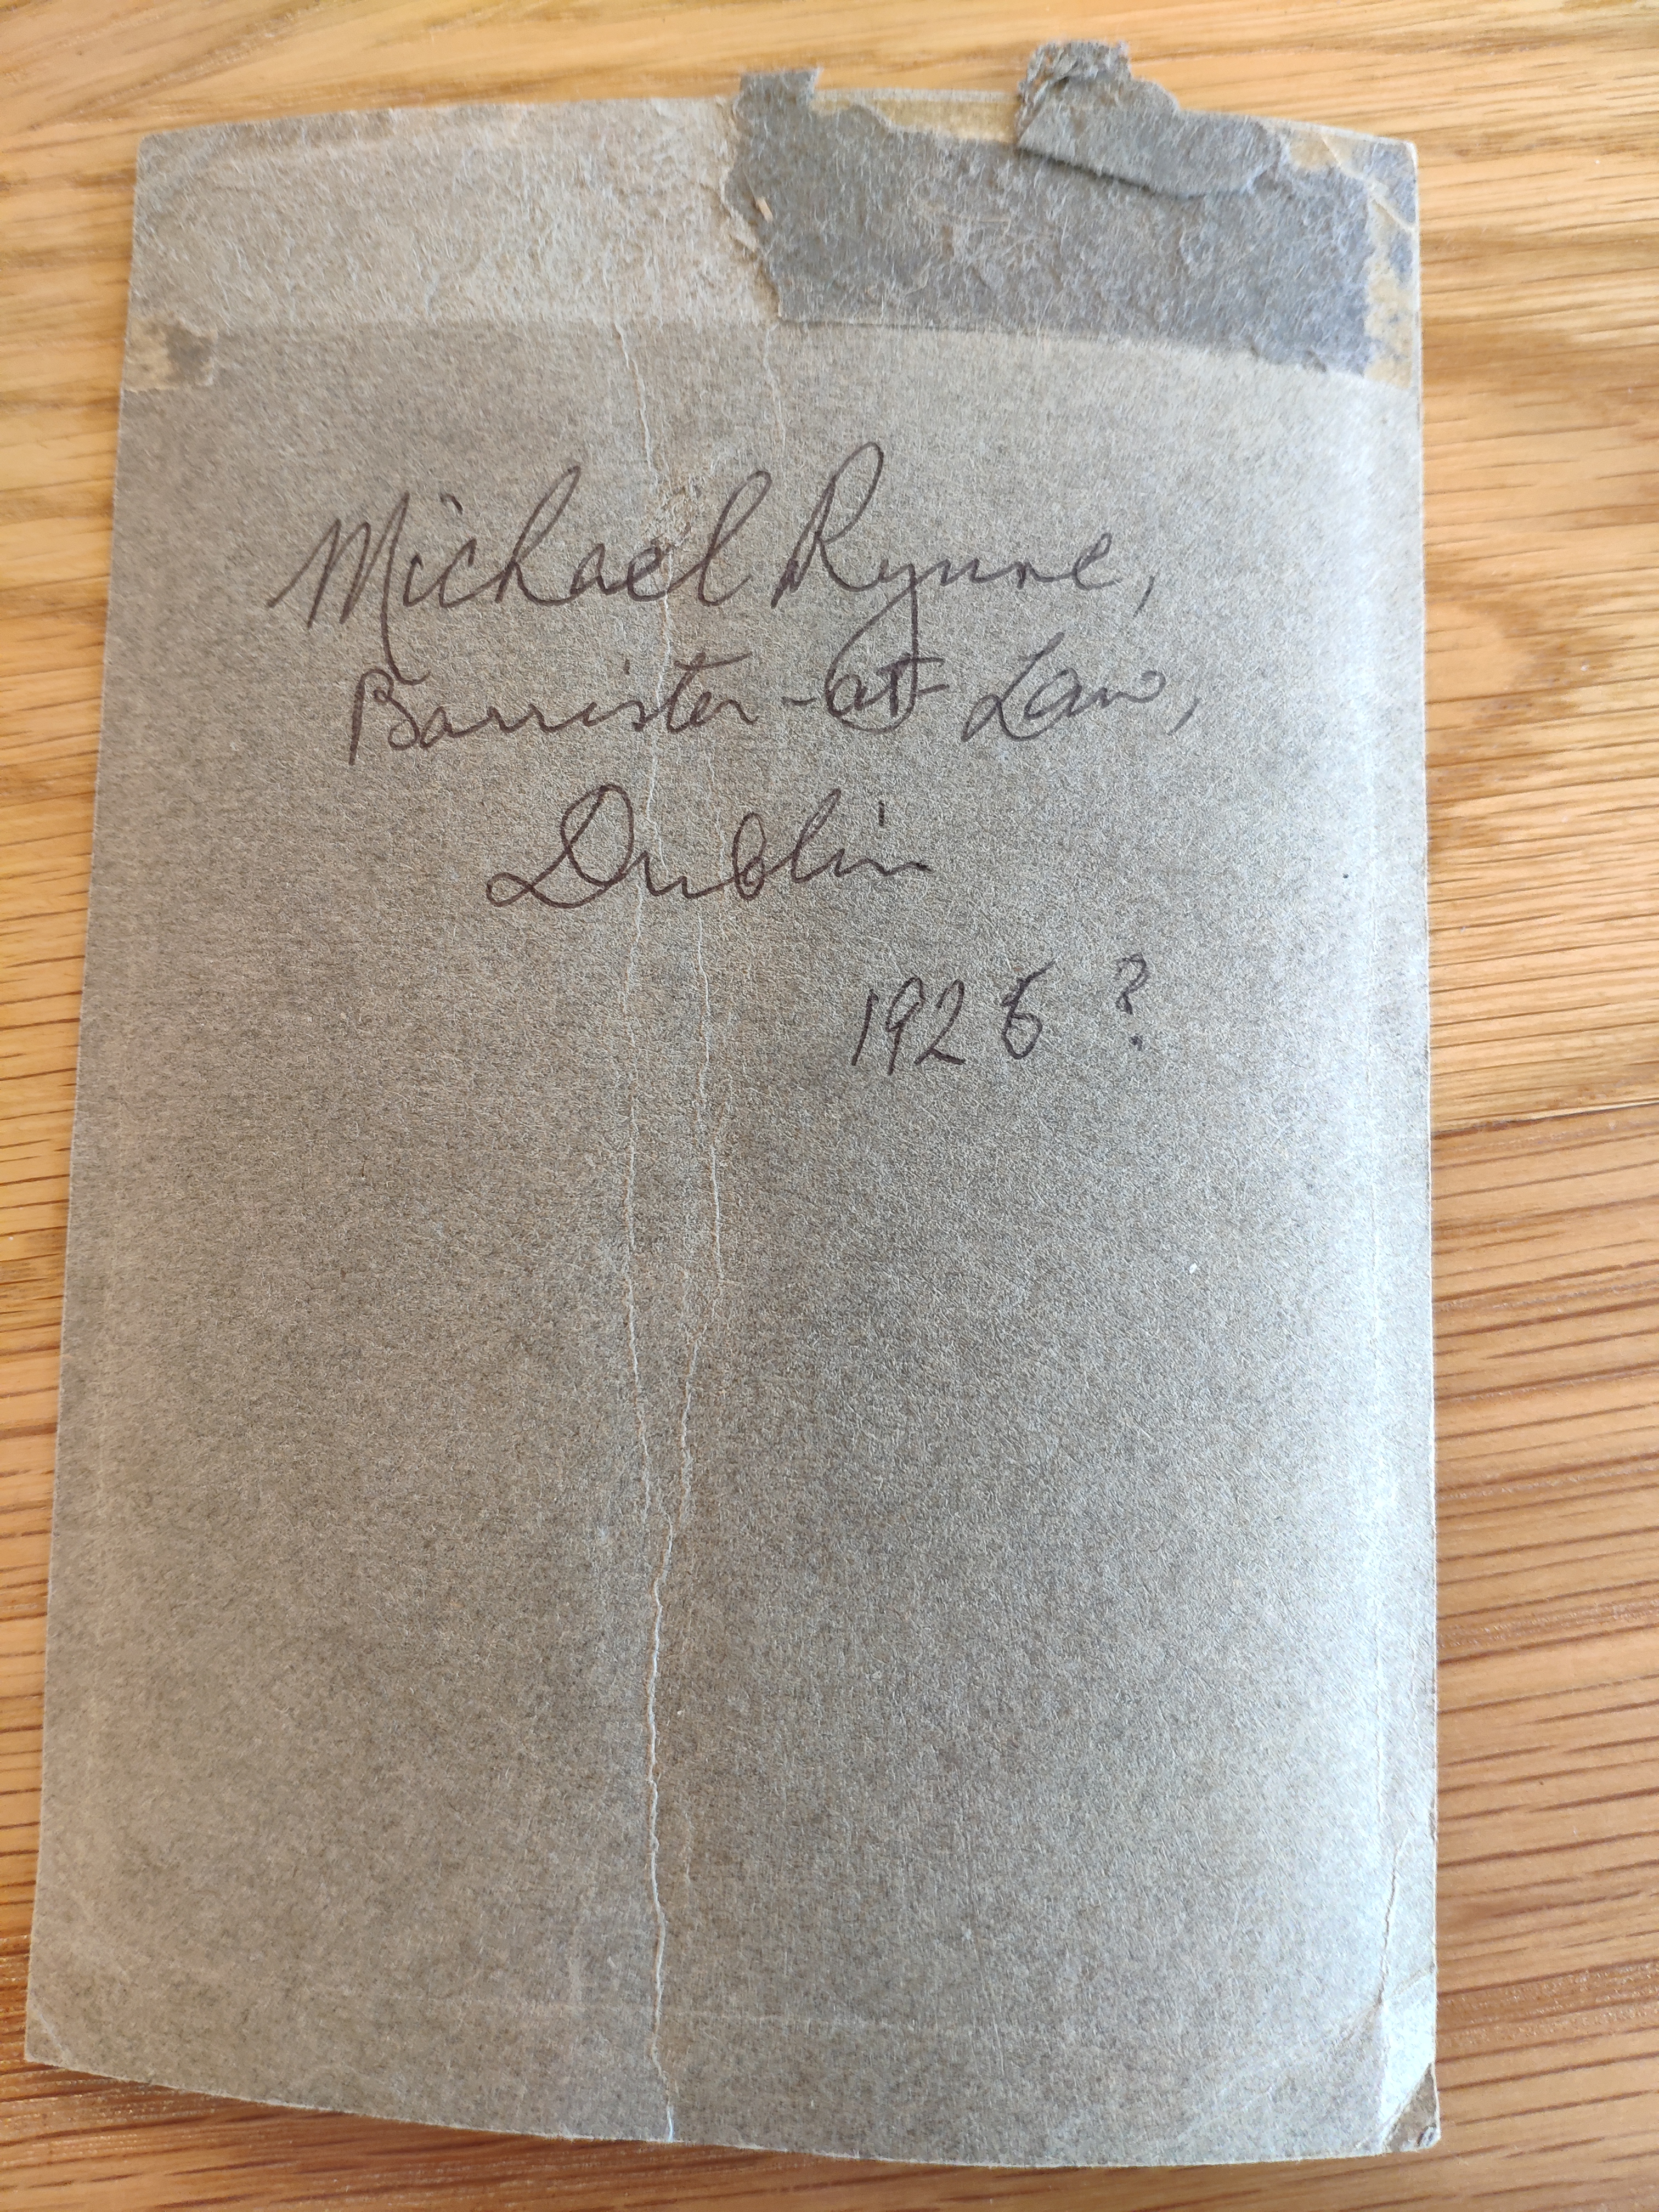 Michael Rynne,
Barrister-at-Law,
Dublin
1926 ?